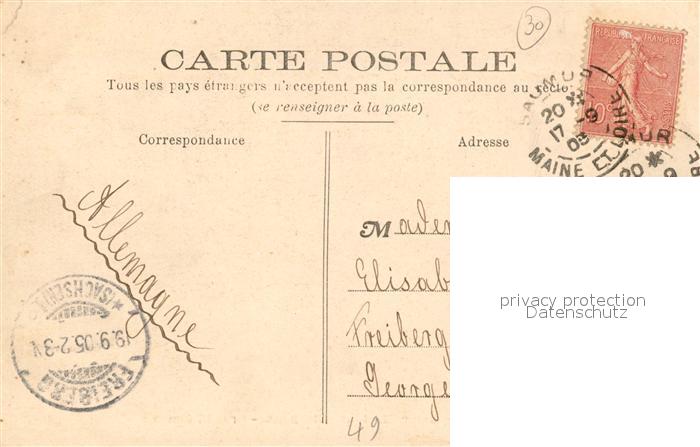 30
CARTE POSTALE
Tous les pays étrangers n'acceptent pas la correspondance au recto
(se renseigner à la poste)
Correspondance
Adresse
RÉPUBLIQUE FRANÇAISE
SAUMUR
20
17 -9
05
MAINE ET LOIRE
Allemagne
Made
Elisab
Freiberg
George
49
FREIBERG
(SACHSEN)
19.9.05.2-3N
privacy protection
Datenschutz